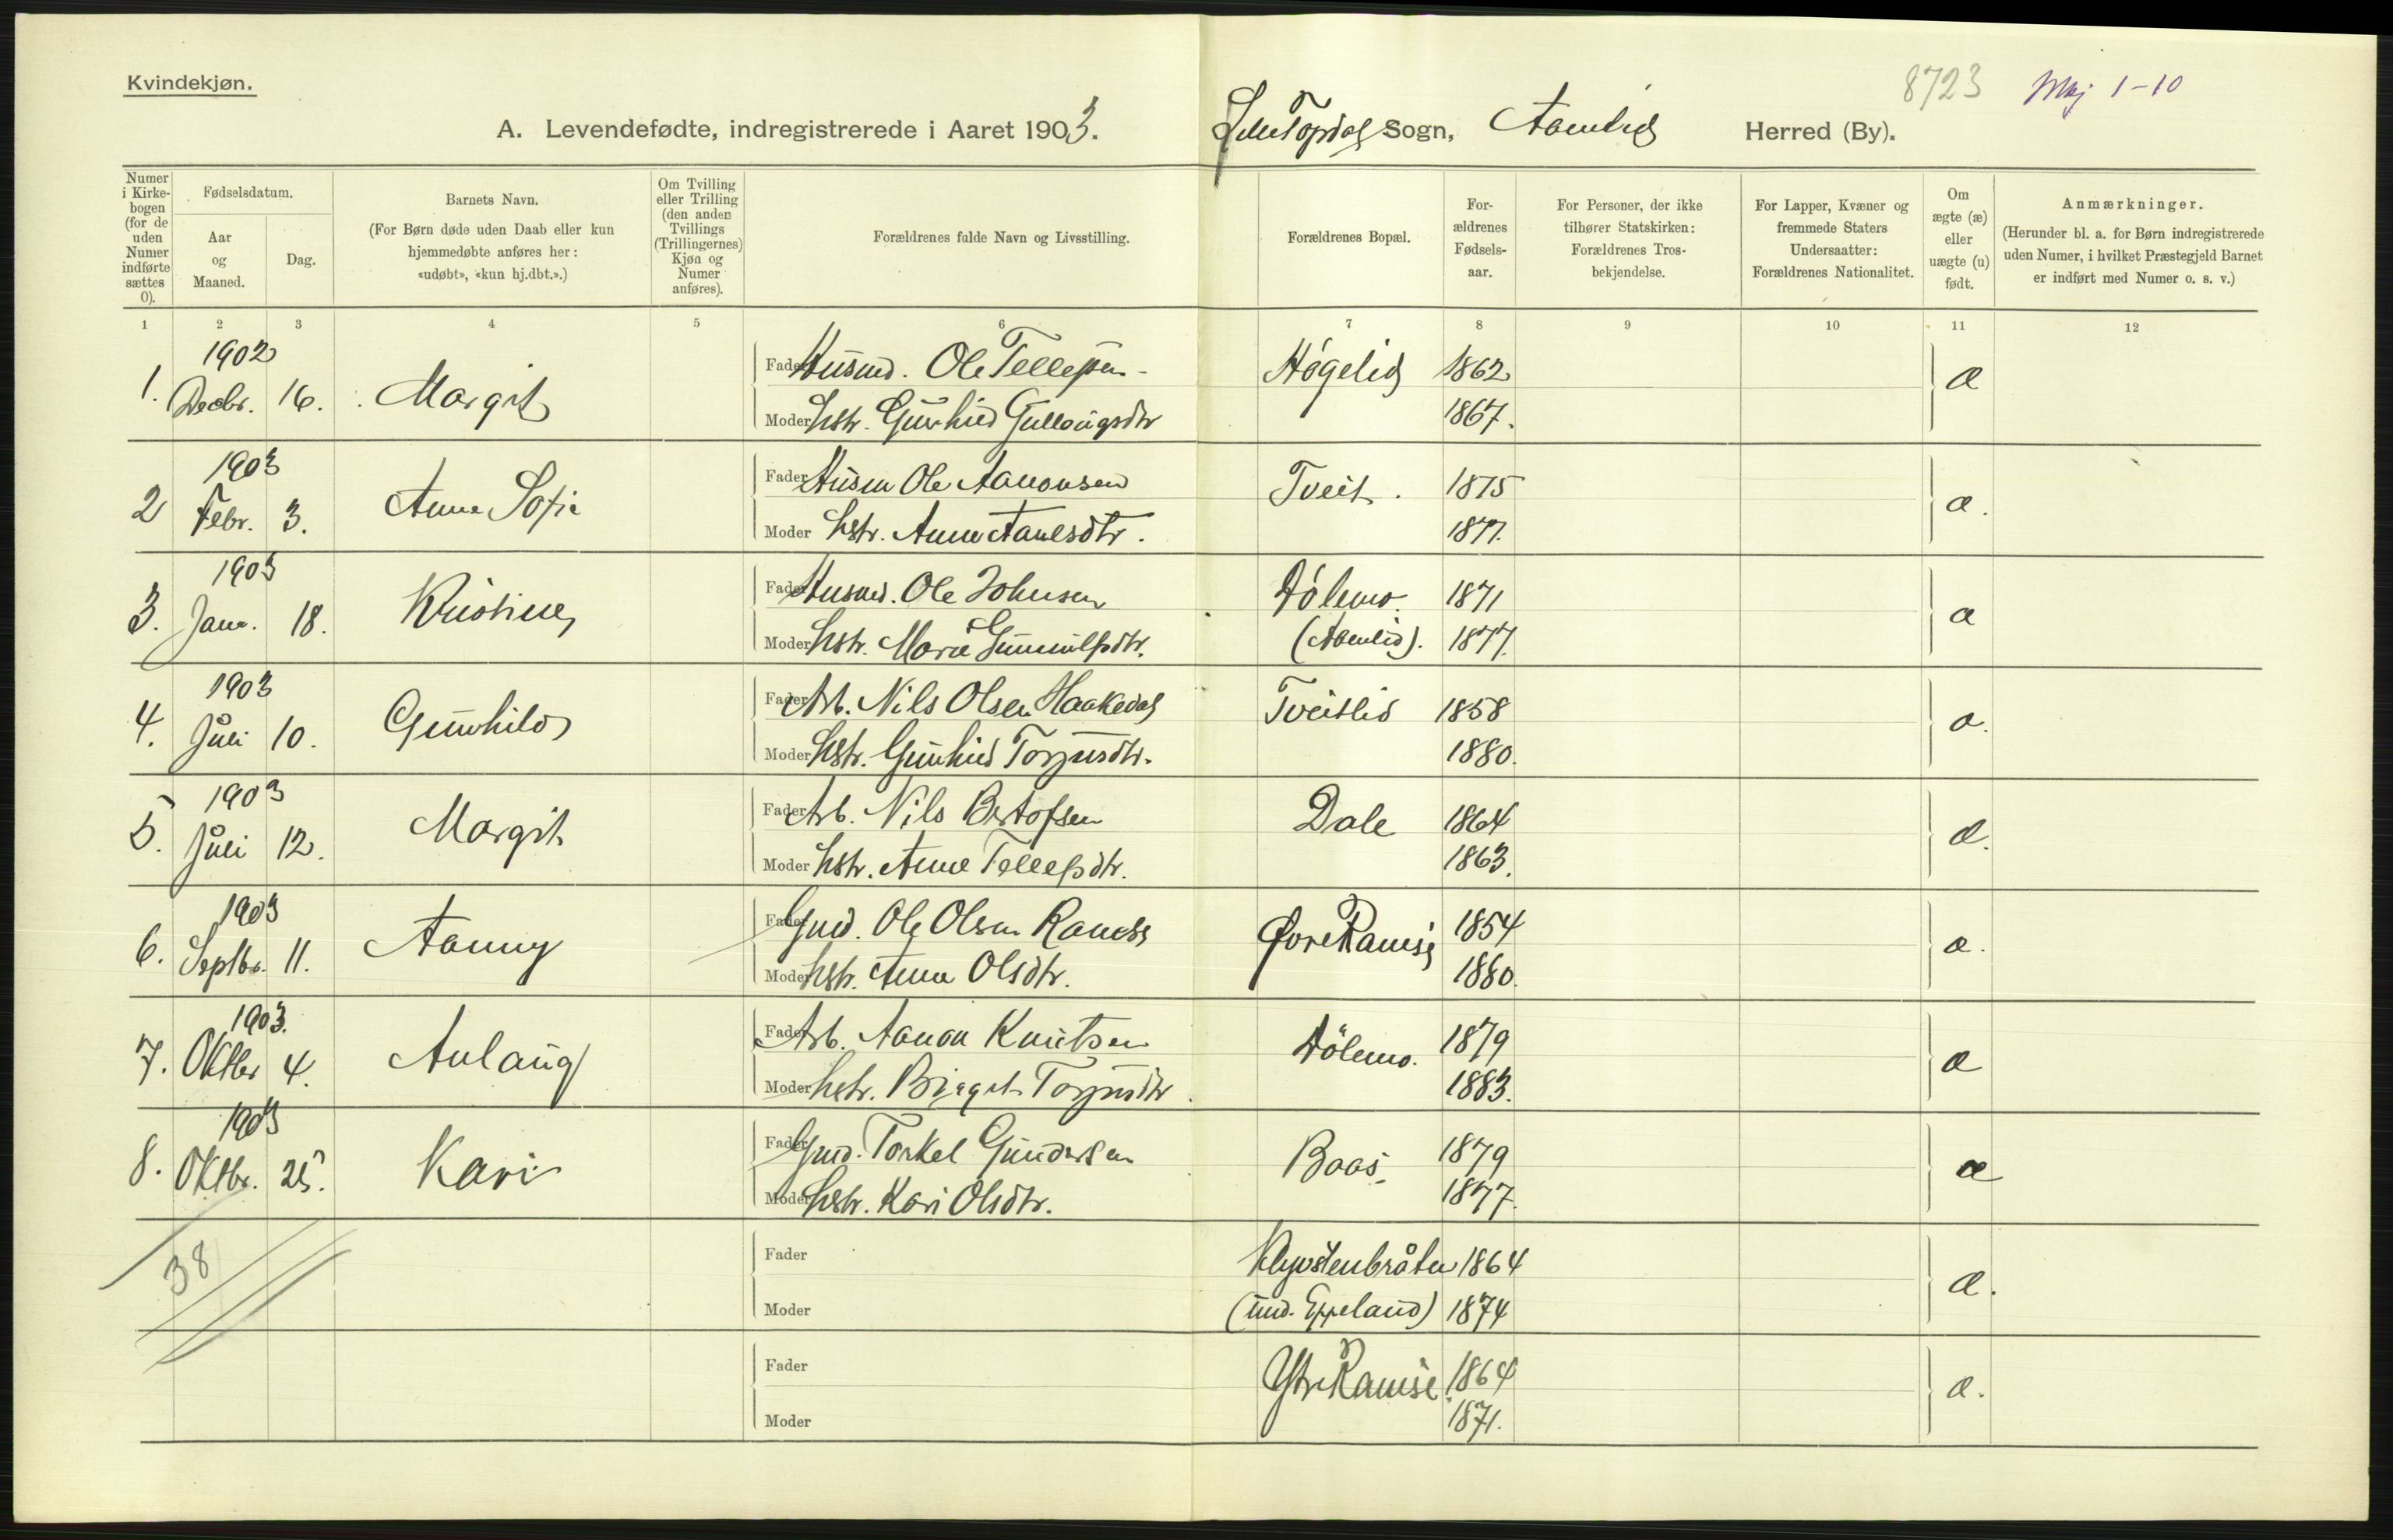 Kvindekjøn.
8723 Maj 1-10
A. Levendefødte, indregistrerede i Aaret 1903. Sogn, Aamlid Herred (By).
Numer i Kirkebogen (for de uden Numer indførte sættes 0).
Fødselsdatum.
Aar og Maaned.
Dag.
Barnets Navn.
(For Børn døde uden Daab eller kun hjemmedøbte anføres her: «udøbt», «kun hj.dbt.».)
Om Tvilling eller Trilling (den anden Tvillings (Trillingernes) Kjøn og Numer anføres).
Forældrenes fulde Navn og Livsstilling.
Forældrenes Bopæl.
Forældrenes Fødselsaar.
For Personer, der ikke tilhører Statskirken: Forældrenes Trosbekjendelse.
For Lapper, Kvæner og fremmede Staters Undersaatter: Forældrenes Nationalitet.
Om ægte (æ) eller uægte (u) født.
Anmærkninger.
(Herunder bl. a. for Børn indregistrerede uden Numer, i hvilket Præstegjeld Barnet er indført med Numer o. s. v.)
1 2 3 4 5 6 7 8 9 10 11 12
1. 1902 Decbr. 16. Margit Fader Husmd. Ole Tellefsen Høgelid 1862 æ
Moder hstr. Gunhild 1867.
2 1903 Febr. 3. Anne Sofie Fader Husm Ole Aanonsen Tveit. 1875 æ.
Moder hstr. Anne 1877.
3. 1903 Janr. 18. Kristine Fader Husmd. Ole Johnsen Dölemo. 1871 æ
Moder hstr. Marie Gunnulfsdtr. (Aamlid). 1877.
4. 1903 Juli 10. Gunhild Fader Arb. Nils Olsen Haakedal Tveitlid 1858 æ.
Moder hstr. Gunhild Torjusdtr. 1880.
5. 1903 Juli 12. Margit Fader Arb. Nils Dale 1864 æ.
Moder hstr. Anne Tellefsdtr. 1863.
6. 1903 Septbr. 11. Aanny Fader Gmd. Ole Olsen Ramse Øvre Ramse 1854 æ.
Moder hstr. Anne Olsdtr. 1880.
7. 1903. Oktbr 4. Aslaug Fader Arb. Aanon Knutsen Dölemo. 1879 æ
Moder hstr. Birgit Torjusdtr 1883.
8. 1903 Oktbr. 25. Kari Fader Gmd. Torkel Gundersen Baas 1879 æ
Moder hstr. Kari Olsdtr. 1877.
38
Fader 1864 æ.
Moder (und. Eppeland) 1874
Fader Ytre Ramse 1864 æ.
Moder 1871.